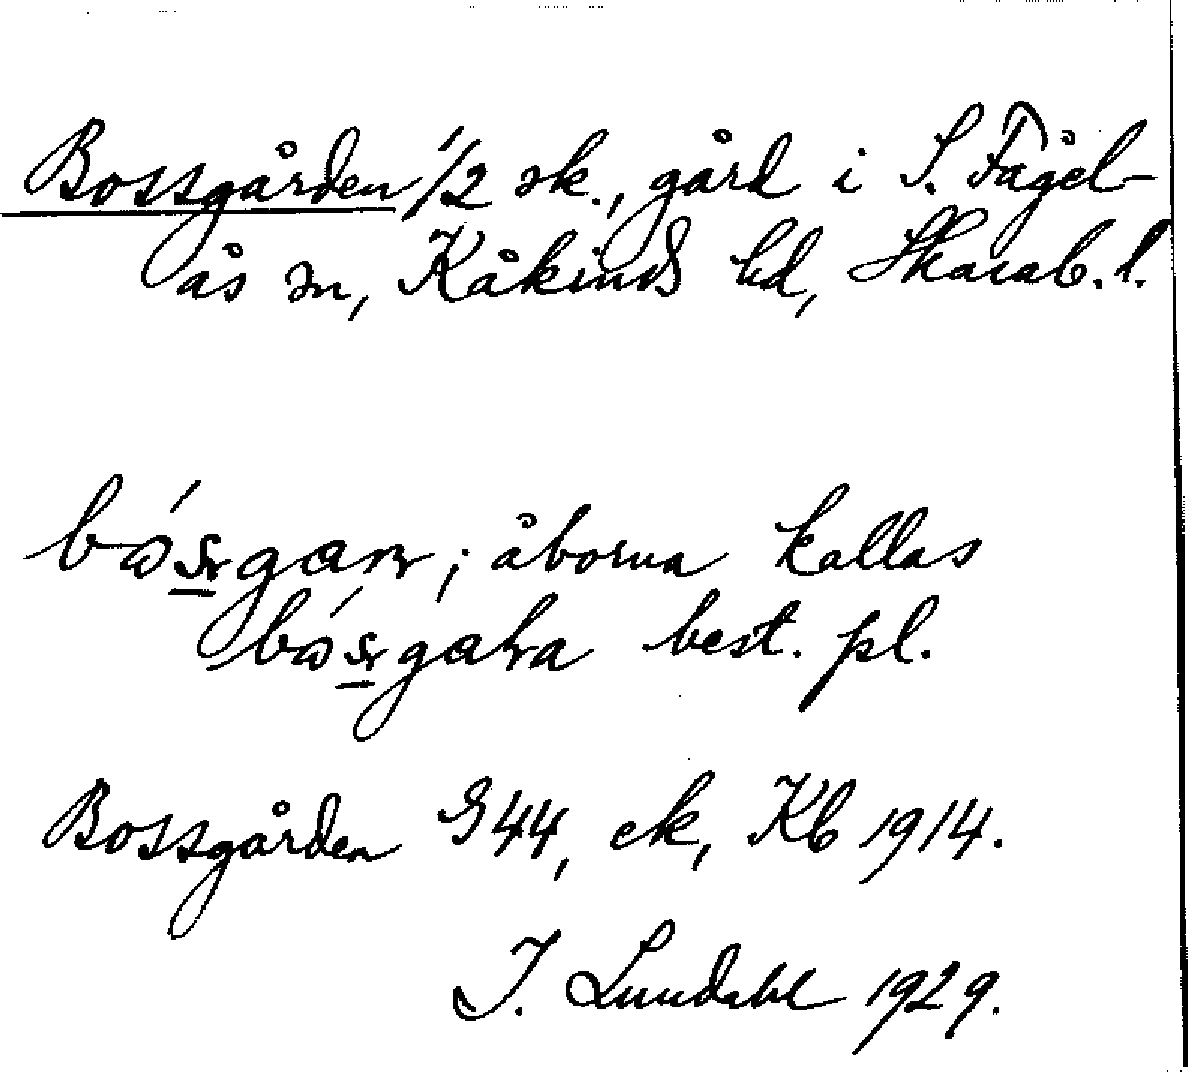 Bossgården 1/2 sk., gård i S. Fågel-
ås sn, Kåkinds hd, Skarab. l.
åborna kallas
best. pl.
Bossgården G44, ek, Kb 1914.
I. Lundahl 1929.